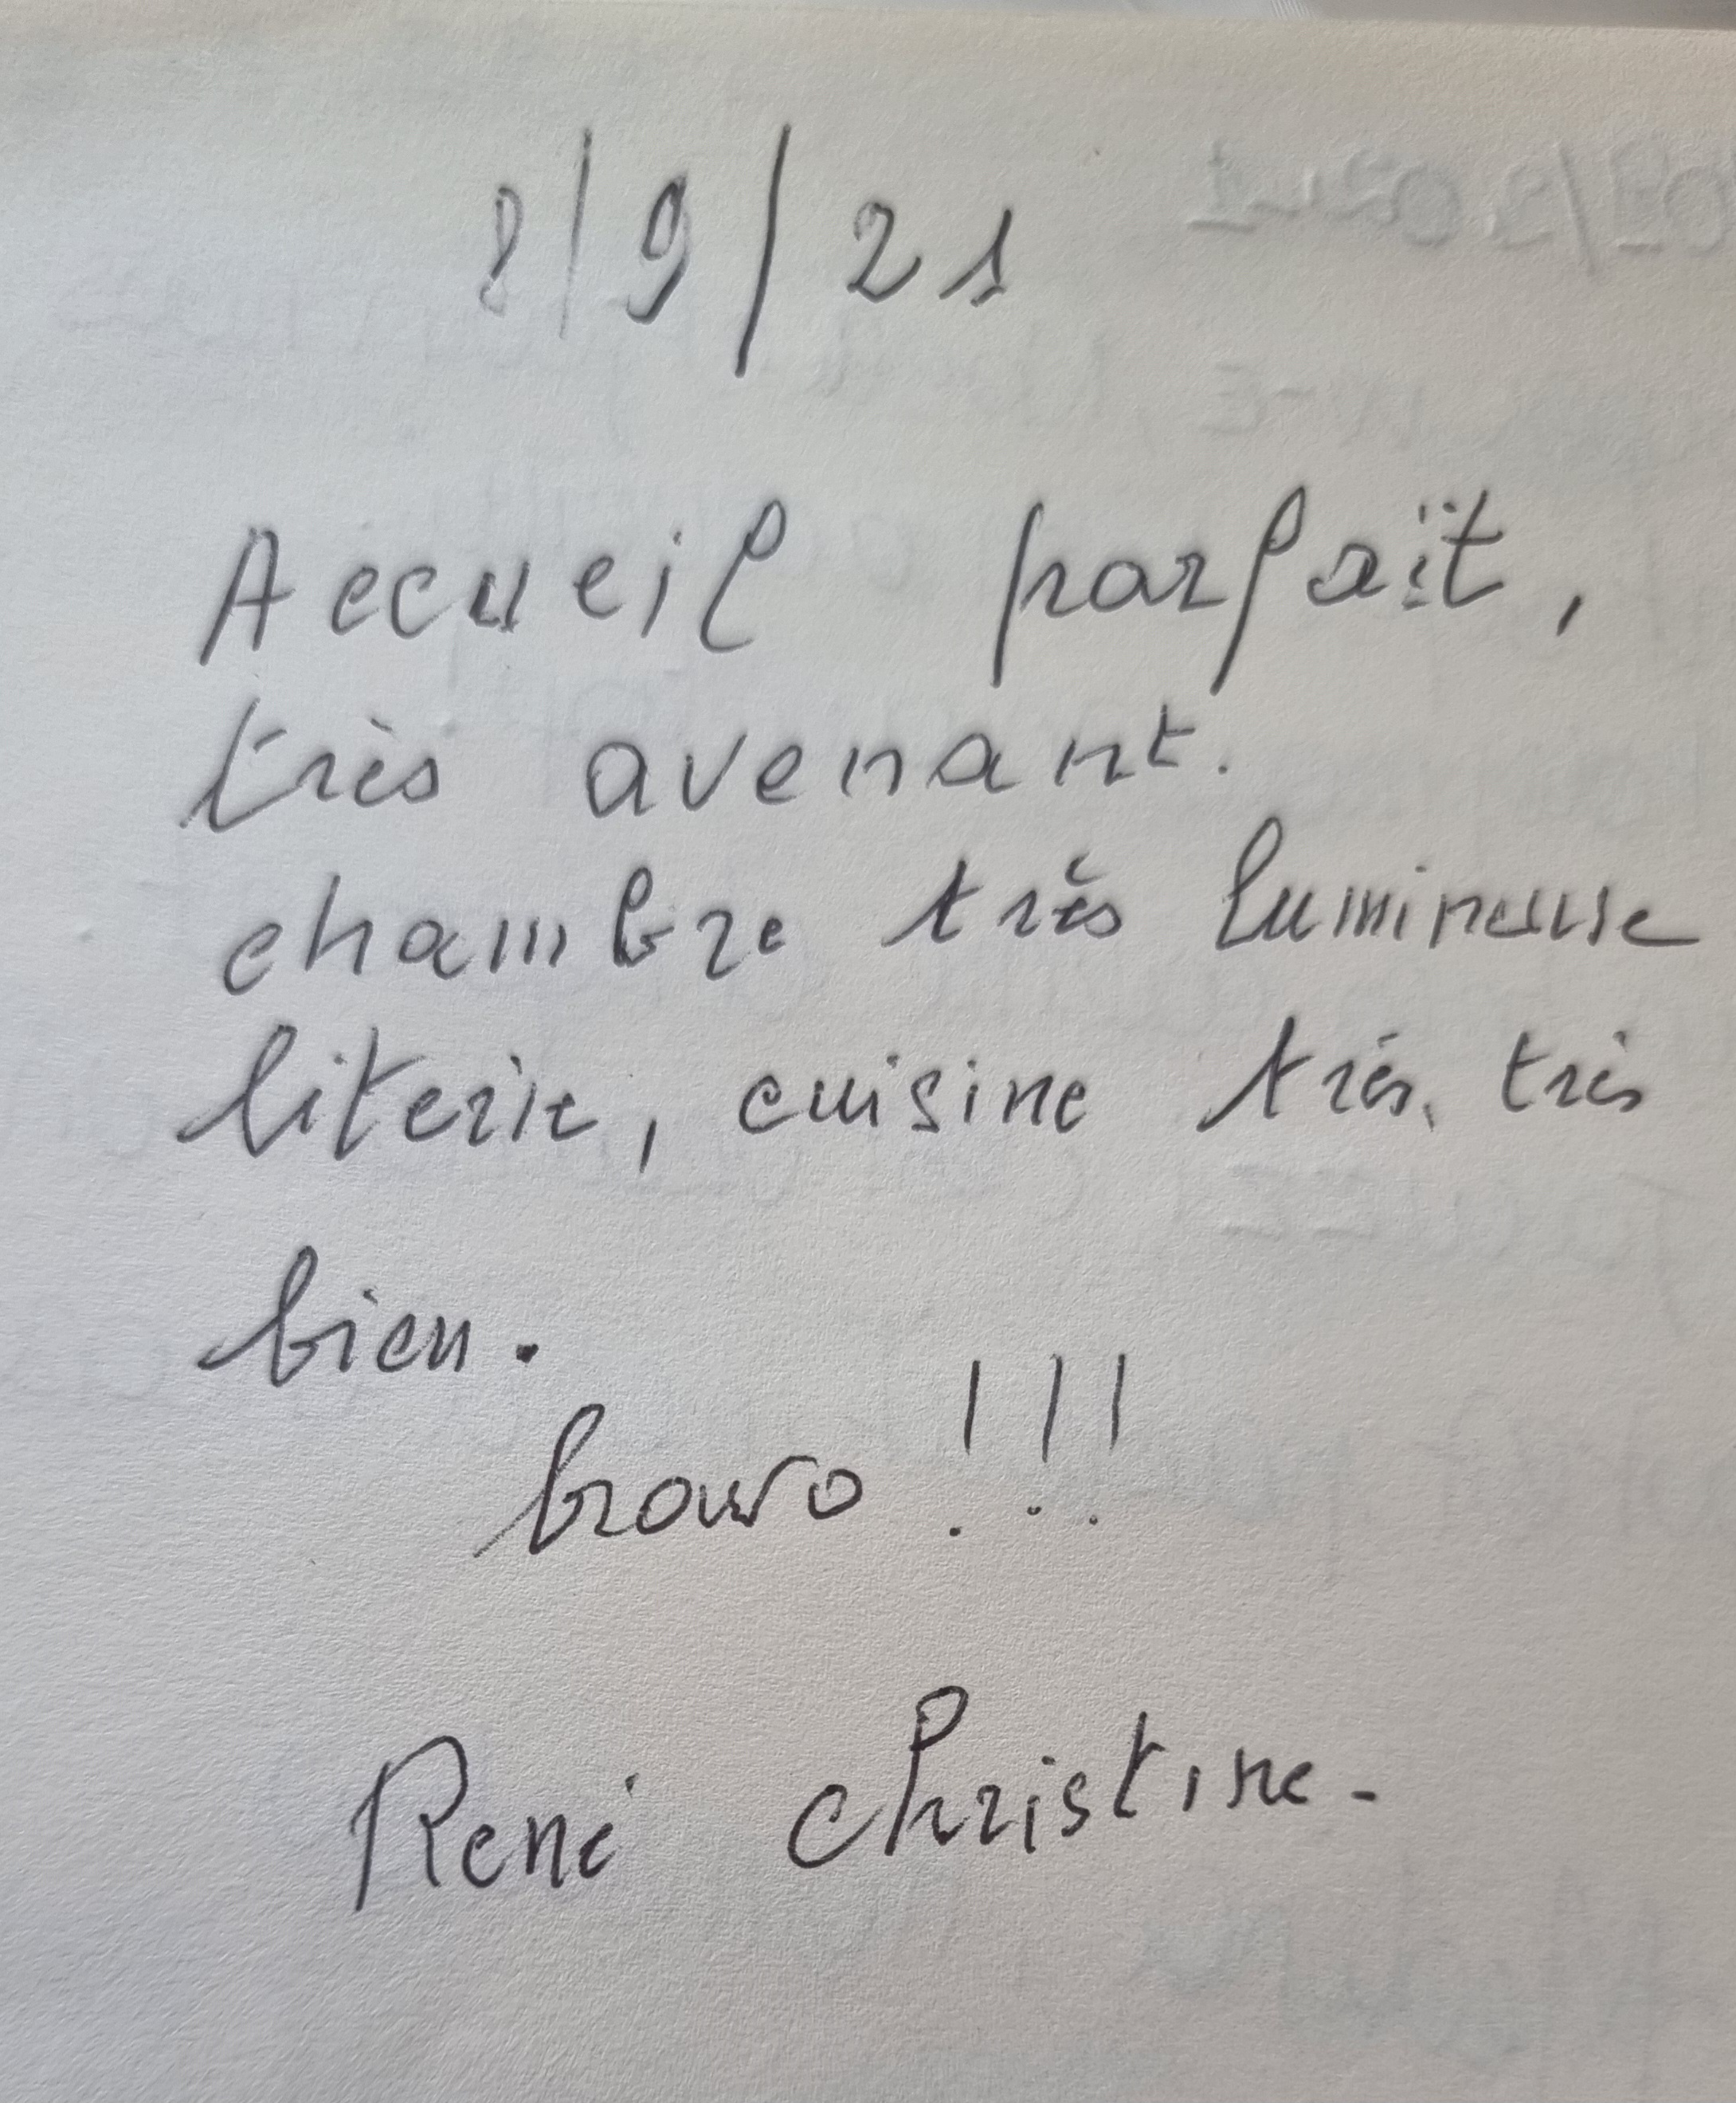 8/9/21
Accueil parfaït,
très avenant.
chambre très lumineuse
literie, cuisine très, très
bien.
bravo !!!
René Christine.